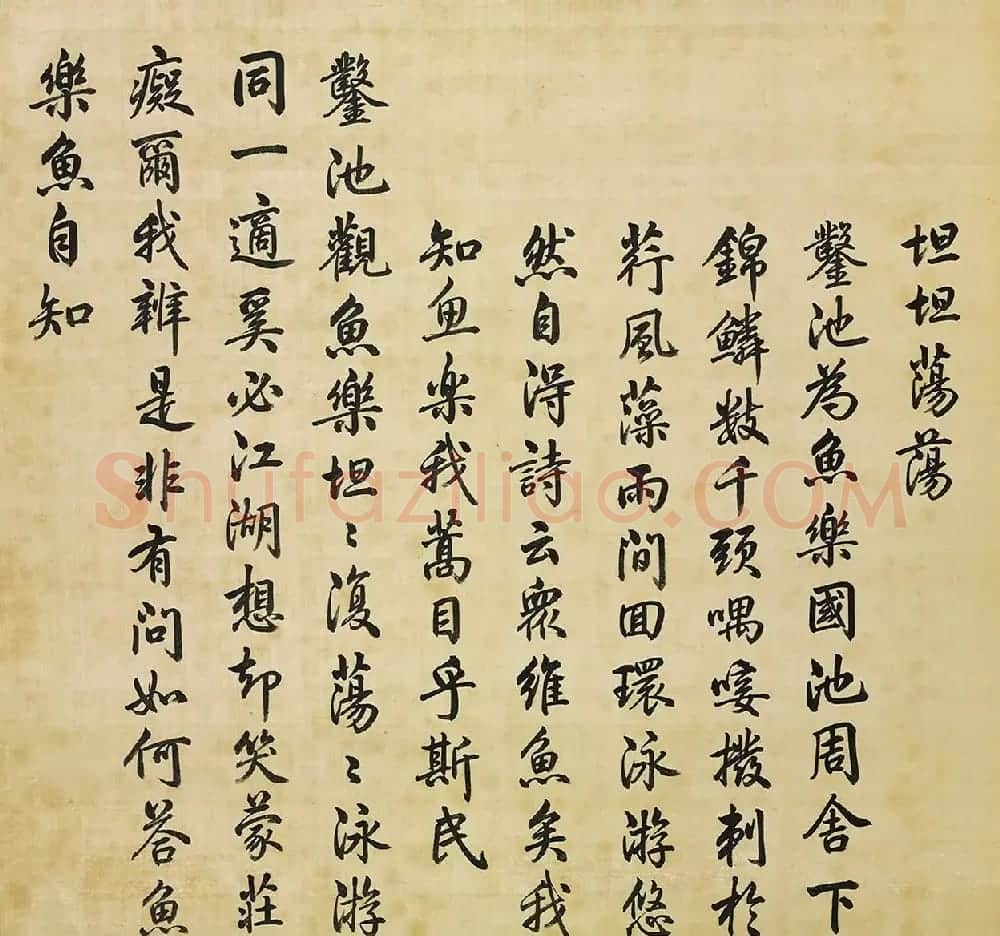 坦坦蕩蕩
鑿池為魚樂國池周舍下
錦鱗數千頭喁唼撥刺於
荇風藻雨間回環泳游悠
然自得詩云衆維魚矣我
知魚樂我蒿目乎斯民
鑿池觀魚樂坦〻復蕩〻泳游
同一適奚必江湖想却笑蒙莊
癡爾我辨是非有問如何答魚
樂魚自知
Shufaziliao.COM